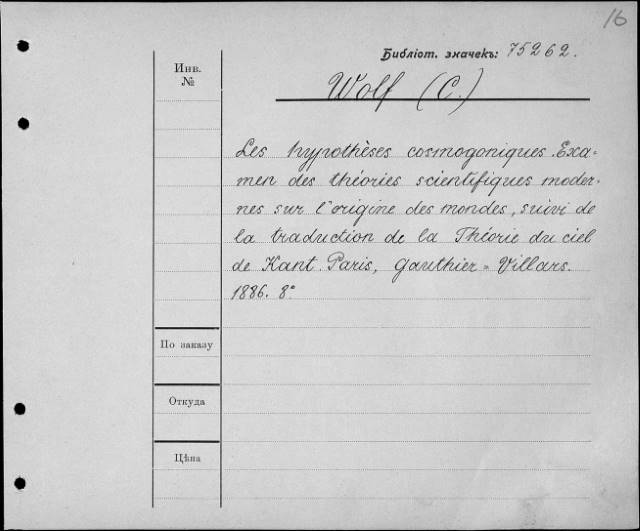 16
Библіот. значекъ: 75262.
Инв.
№
Wolf (C.)
Les hypothèses cosmogoniques. Exa=
men des théories scientifiques moder-
nes sur l'origine des mondes, suivi de
la traduction de la Théorie du ciel
de Kant. Paris, Gauthier=Villars.
1886. 8°
По заказу
Откуда
Цѣна